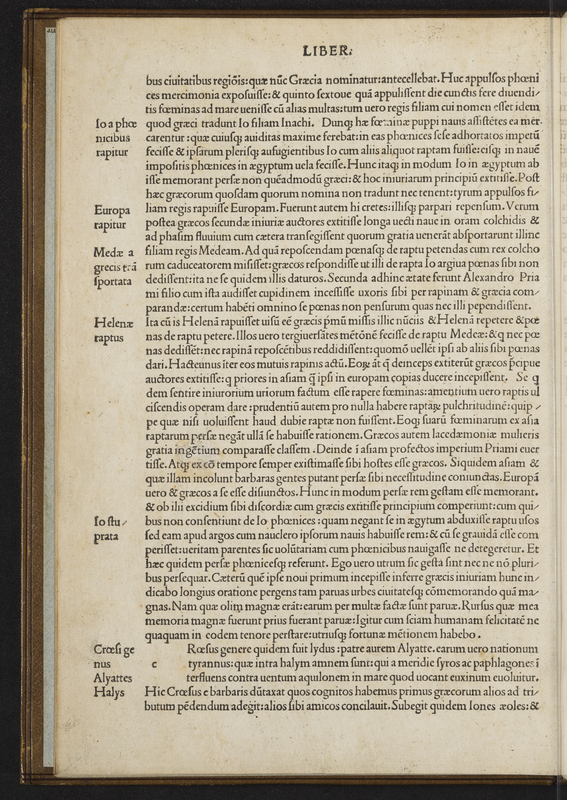 LIBER.
bus ciuitatibus regiõis:quæ nũc Græcia nominatur:antecellebat. Huc appulsos phœni
ces mercimonia exposuisse:& quinto sextoue quã appulissent die cunctis fere diuendi/
tis fœminas ad mare uenisse cũ alias multas:tum uero regis filiam cui nomen esset idem
Io a phœ
nicibus
rapitur
quod græci tradunt Io filiam Inachi. Dunq; hæ fœminæ puppi nauis assistẽtes ea mer
carentur:quæ cuiusq; auiditas maxime ferebat:in eas phœnices sese adhortatos impetũ
fecisse & ipsarum plerisq; aufugientibus Io cum aliis aliquot raptam fuisse:eisq; in nauẽ
impositis phœnices in ægyptum uela fecisse. Hunc itaq; in modum Io in ægyptum ab
isse memorant persæ non quẽadmodũ græci:& hoc iniuriarum principiũ extitisse. Post
hæc græcorum quosdam quorum nomina non tradunt nec tenent:tyrum appulsos fi/
Europa
rapitur
liam regis rapuisse Europam. Fuerunt autem hi cretes:illisq; parpari repensum. Verum
postea græcos secundæ iniuriæ auctores extitisse longa uecti naue in oram colchidis &
ad phasim fluuium cum cætera transegissent quorum gratia uenerãt absportarunt illinc
Medæ a
grecis trã
sportata
filiam regis Medeam. Ad quã reposcendam pœnasq; de raptu petendas cum rex colcho
rum caduceatorem misisset:græcos respondisse ut illi de rapta Io argiua pœnas sibi non
dedissent:ita ne se quidem illis daturos. Secunda adhinc ætate ferunt Alexandro Pria
mi filio cum ista audisset cupidinem incessisse uxoris sibi per rapinam & græcia com/
parandæ:certum habẽti omnino se pœnas non pensurum quas nec illi pependissent.
Helenæ
raptus
Ita cũ is Helenã rapuisset uisũ eẽ græcis p̃mũ missis illic nũciis & Helenã repetere & pœ
nas de raptu petere. Illos uero tergiuersãtes mẽtõnẽ fecisse de raptu Medeæ:& q nec pœ
nas dedissẽt:nec rapinã reposcẽtibus reddidissent:quomõ uellẽt ipsi ab aliis sibi pœnas
dari. Hactenus iter eos mutuis rapinis actũ. Eoꝝ ãt q̃ deinceps extiterũt græcos p̃cipue
auctores extitisse:q priores in asiam q̃ ipsi in europam copias ducere incepissent. Se q
dem sentire iniuriorum uirorum factum esse rapere fœminas:amentium uero raptis ul
ciscendis operam dare:prudentiũ autem pro nulla habere raptaꝝ pulchritudinẽ:quip/
pe quæ nisi uoluissent haud dubie raptæ non fuissent. Eoq; suarũ fœminarum ex asia
raptarum persæ negãt ullã se habuisse rationem. Græcos autem lacedæmoniæ mulieris
gratia ingẽtium comparasse classem. Deinde ĩ asiam profectos imperium Priami euer
tisse. Atq; ex eõ tempore semper existimasse sibi hostes esse græcos. Siquidem asiam &
quæ illam incolunt barbaras gentes putant persæ sibi necessitudine coniunctas. Europã
uero & græcos a se esse disiunctos. Hunc in modum persæ rem gestam esse memorant.
& ob ilii excidium sibi discordiæ cum græcis extitisse principium comperiunt:cum qui/
Io stu/
prata
bus non consentiunt de Io phœnices:quam negant se in ægytum abduxisse raptu usos
sed eam apud argos cum nauclero ipsorum nauis habuisse rem:& cũ se grauidã esse com
perisset:ueritam parentes sic uolũtariam cum phœnicibus nauigasse ne deregeretur. Et
hæc quidem persæ phœnicesq; referunt. Ego uero utrum sic gesta sint nec ne nõ pluri/
bus persequar. Cæterũ quẽ ipse noui primum incepisse inferre græcis iniuriam hunc in/
dicabo longius oratione pergens tam paruas urbes ciuitatesq; cõmemorando quã ma/
gnas. Nam quæ olim magnæ erãt:earum per multæ factæ sunt paruæ. Rursus quæ mea
memoria magnæ fuerunt prius fuerant paruæ:Igitur cum sciam humanam felicitatẽ ne
quaquam in eodem tenore perstare:utriusq; fortunæ mẽtionem habebo.
Crœsi ge
nus
Alyattes
Halys
c Rœsus genere quidem fuit lydus:patre aurem Alyatte. earum uero nationum
tyrannus:quæ intra halym amnem sunt:qui a meridie syros ac paphlagones ĩ
terfluens contra uentum aquilonem in mare quod uocant euxinum euoluitur.
Hic Crœsus e barbaris dũtaxat quos cognitos habemus primus græcorum alios ad tri/
butum pẽdendum adegit:alios sibi amicos concilauit. Subegit quidem Iones æoles:&